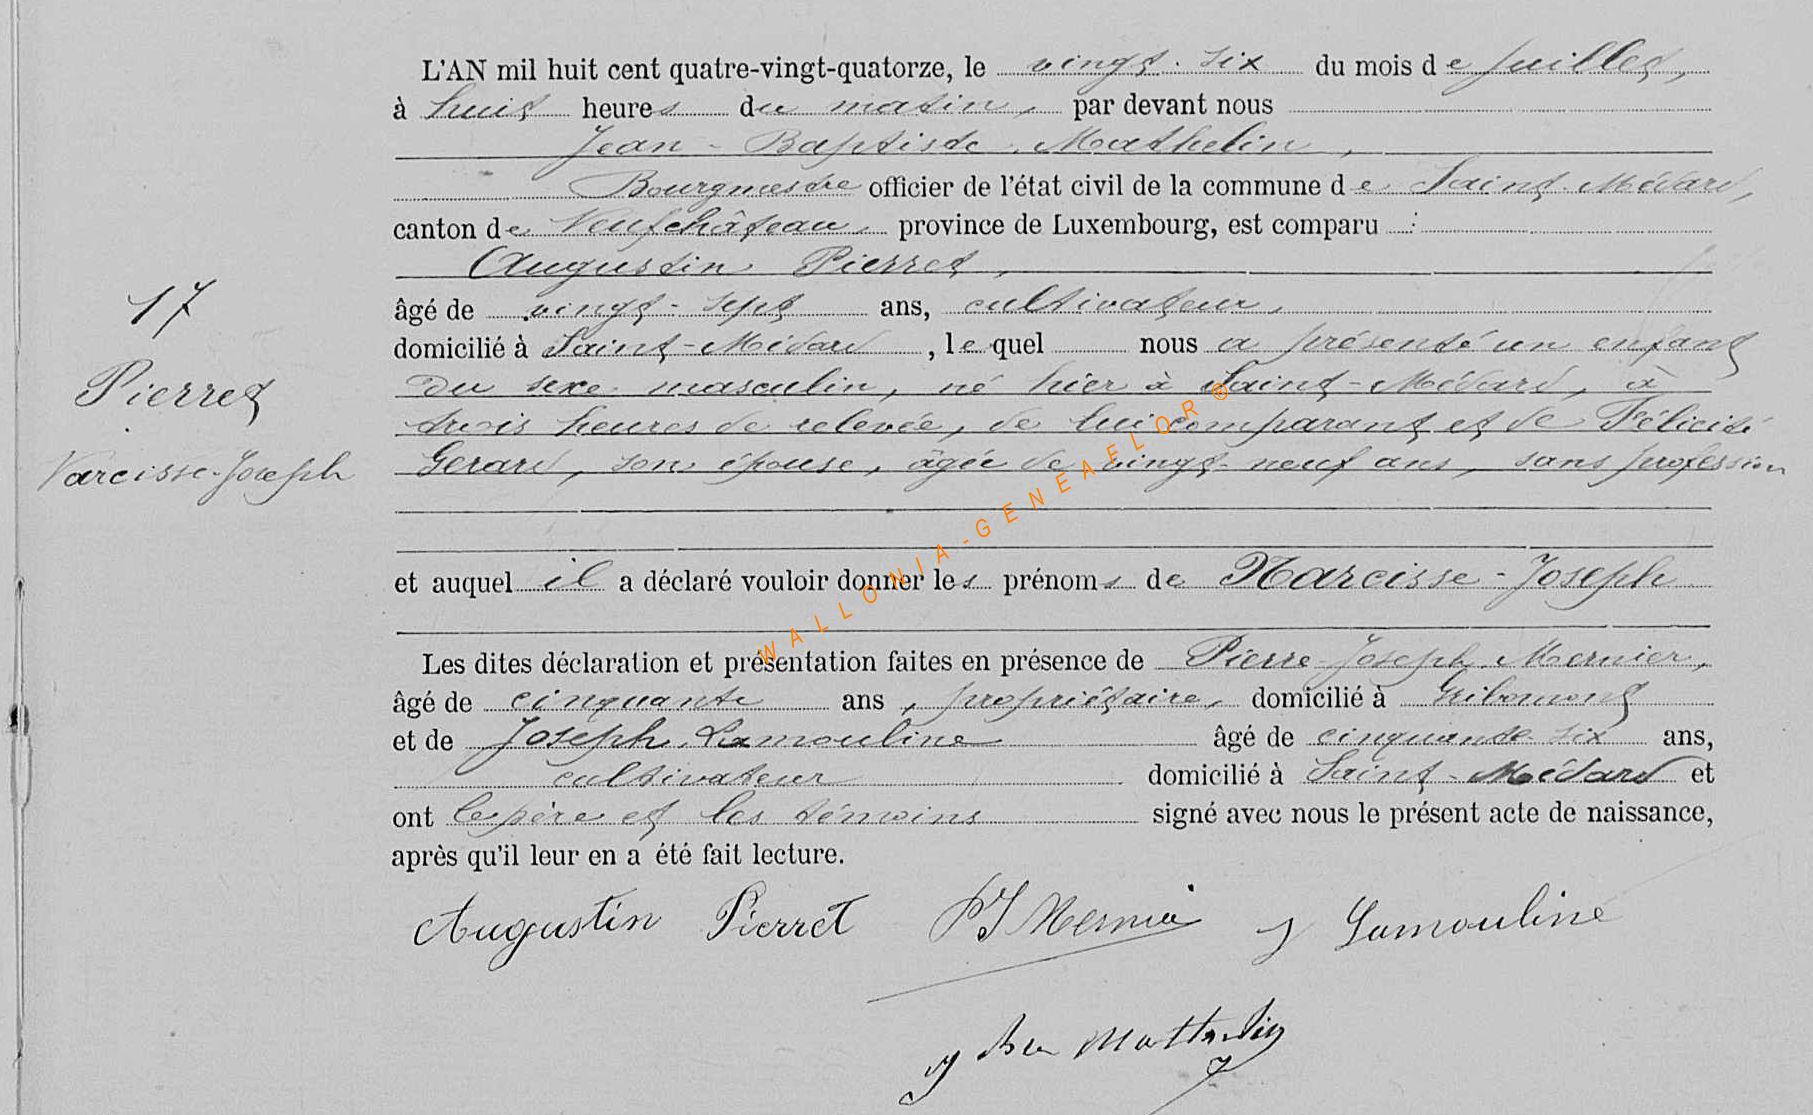 L'AN mil huit cent quatre-vingt-quatorze, le vingt-six du mois de juillet,
à huit heures du matin, par devant nous
Jean-Baptiste Mathelin,
Bourgmestre officier de l'état civil de la commune de Saint-Médard,
canton de Neufchâteau, province de Luxembourg, est comparu :
Augustin Pierret,
âgé de vingt-sept ans, cultivateur,
domicilié à Saint-Médard, lequel nous a présenté un enfant
du sexe masculin, né hier à Saint-Médard, à
trois heures de relevée, de lui comparant et de Félicité
Gerard, son épouse, âgée de vingt-neuf ans, sans profession
17
Pierret
Narcisse-Joseph
et auquel il a déclaré vouloir donner les prénoms de Narcisse-Joseph
Les dites déclaration et présentation faites en présence de Pierre Joseph Mernier,
âgé de cinquante ans, propriétaire, domicilié à Gribomont
et de Joseph Lamouline âgé de cinquante six ans,
cultivateur domicilié à Saint-Médard et
ont le père et les témoins signé avec nous le présent acte de naissance,
après qu'il leur en a été fait lecture.
Augustin Pierret PJ Mernier J Lamouline
J Bte Mathelin
WALLONIA-GENEAELOR®